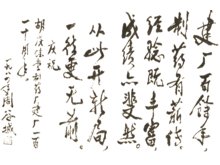 建厂百余年
制药有前绩
经验既丰富
成绩亦斐然
从此开新局
一往更无前
庆祝
胡庆余堂制药厂建厂一百
一十周年
周谷城